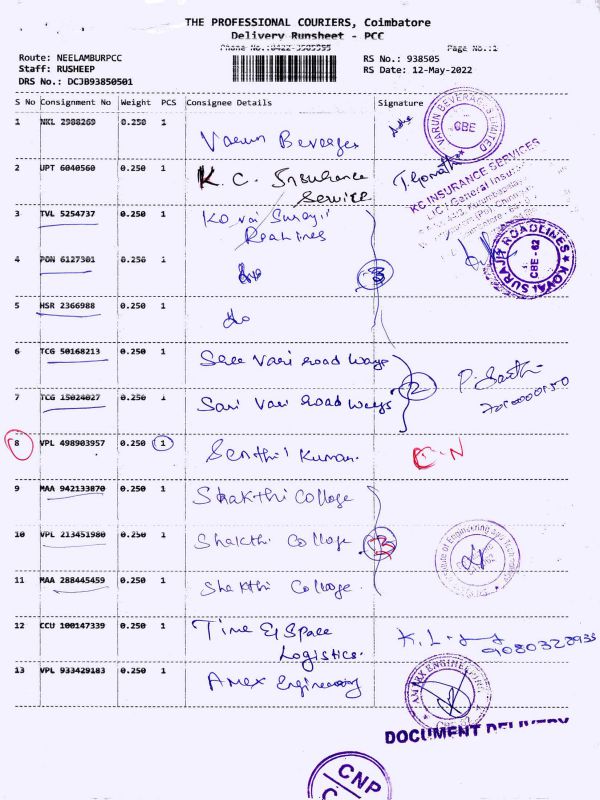 THE PROFESSIONAL COURIERS, Coimbatore
Delivery Runsheet - PCC
Phone No.:0422-3505555 Page No.:1
Route: NEELAMBURPCC RS No.: 938505
Staff: RUSHEEP RS Date: 12-May-2022
DRS No.: DCJB93850501
S No Consignment No Weight PCS Consignee Details Signature
1 NKL 2988269 0.250 1 Varun Beverges
VARUN BEVERAGES LIMITED CBE
2 UPT 6040560 0.250 1 K. C. Insurance
Service
T. Gomathi
KC INSURANCE SERVICES
LIC / General Insurance
3 TVL 5254737 0.250 1 Kovai Suraji
Roadlines
4 PON 6127301 0.250 1 do 3
KOVAI SURAJI ROADLINES CBE - 62
5 HSR 2366988 0.250 1 do
6 TCG 50168213 0.250 1 Sree Vari road ways
2
7 TCG 15024027 0.250 1 Sari Vari road ways
8 VPL 498903957 0.250 1 Senthil Kumar. C.N
9 MAA 942133870 0.250 1 Shakthi College
10 VPL 213451980 0.250 1 Shakthi College 3
11 MAA 288445459 0.250 1 Shakthi College
12 CCU 100147339 0.250 1 Time & Space
Logistics.
13 VPL 933429183 0.250 1 Amex Engineering
DOCUMENT DELIVERY
CNP